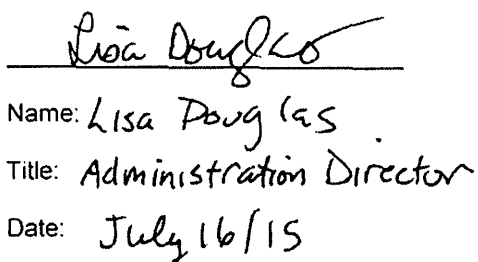 Lisa Douglas
Name: Lisa Douglas
Title: Administration Director
Date: July 16/15